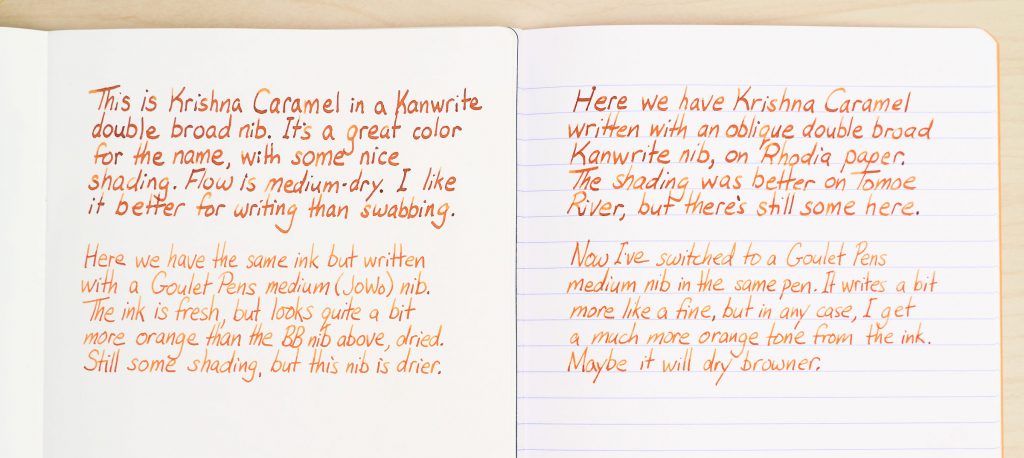 This is Krishna Caramel in a Kanwrite
double broad nib. It's a great color
for the name, with some nice
shading. Flow is medium-dry. I like
it better for writing than swabbing.
Here we have the same ink but written
with a Goulet Pens medium (JoWo) nib.
The ink is fresh, but looks quite a bit
more orange than the BB nib above, dried.
Still some shading, but this nib is drier.
Here we have Krishna Caramel
written with an oblique double broad
Kanwrite nib, on Rhodia paper.
The shading was better on Tomoe
River, but there's still some here.
Now I've switched to a Goulet Pens
medium nib in the same pen. It writes a bit
more like a fine, but in any case, I get
a much more orange tone from the ink.
Maybe it will dry browner.